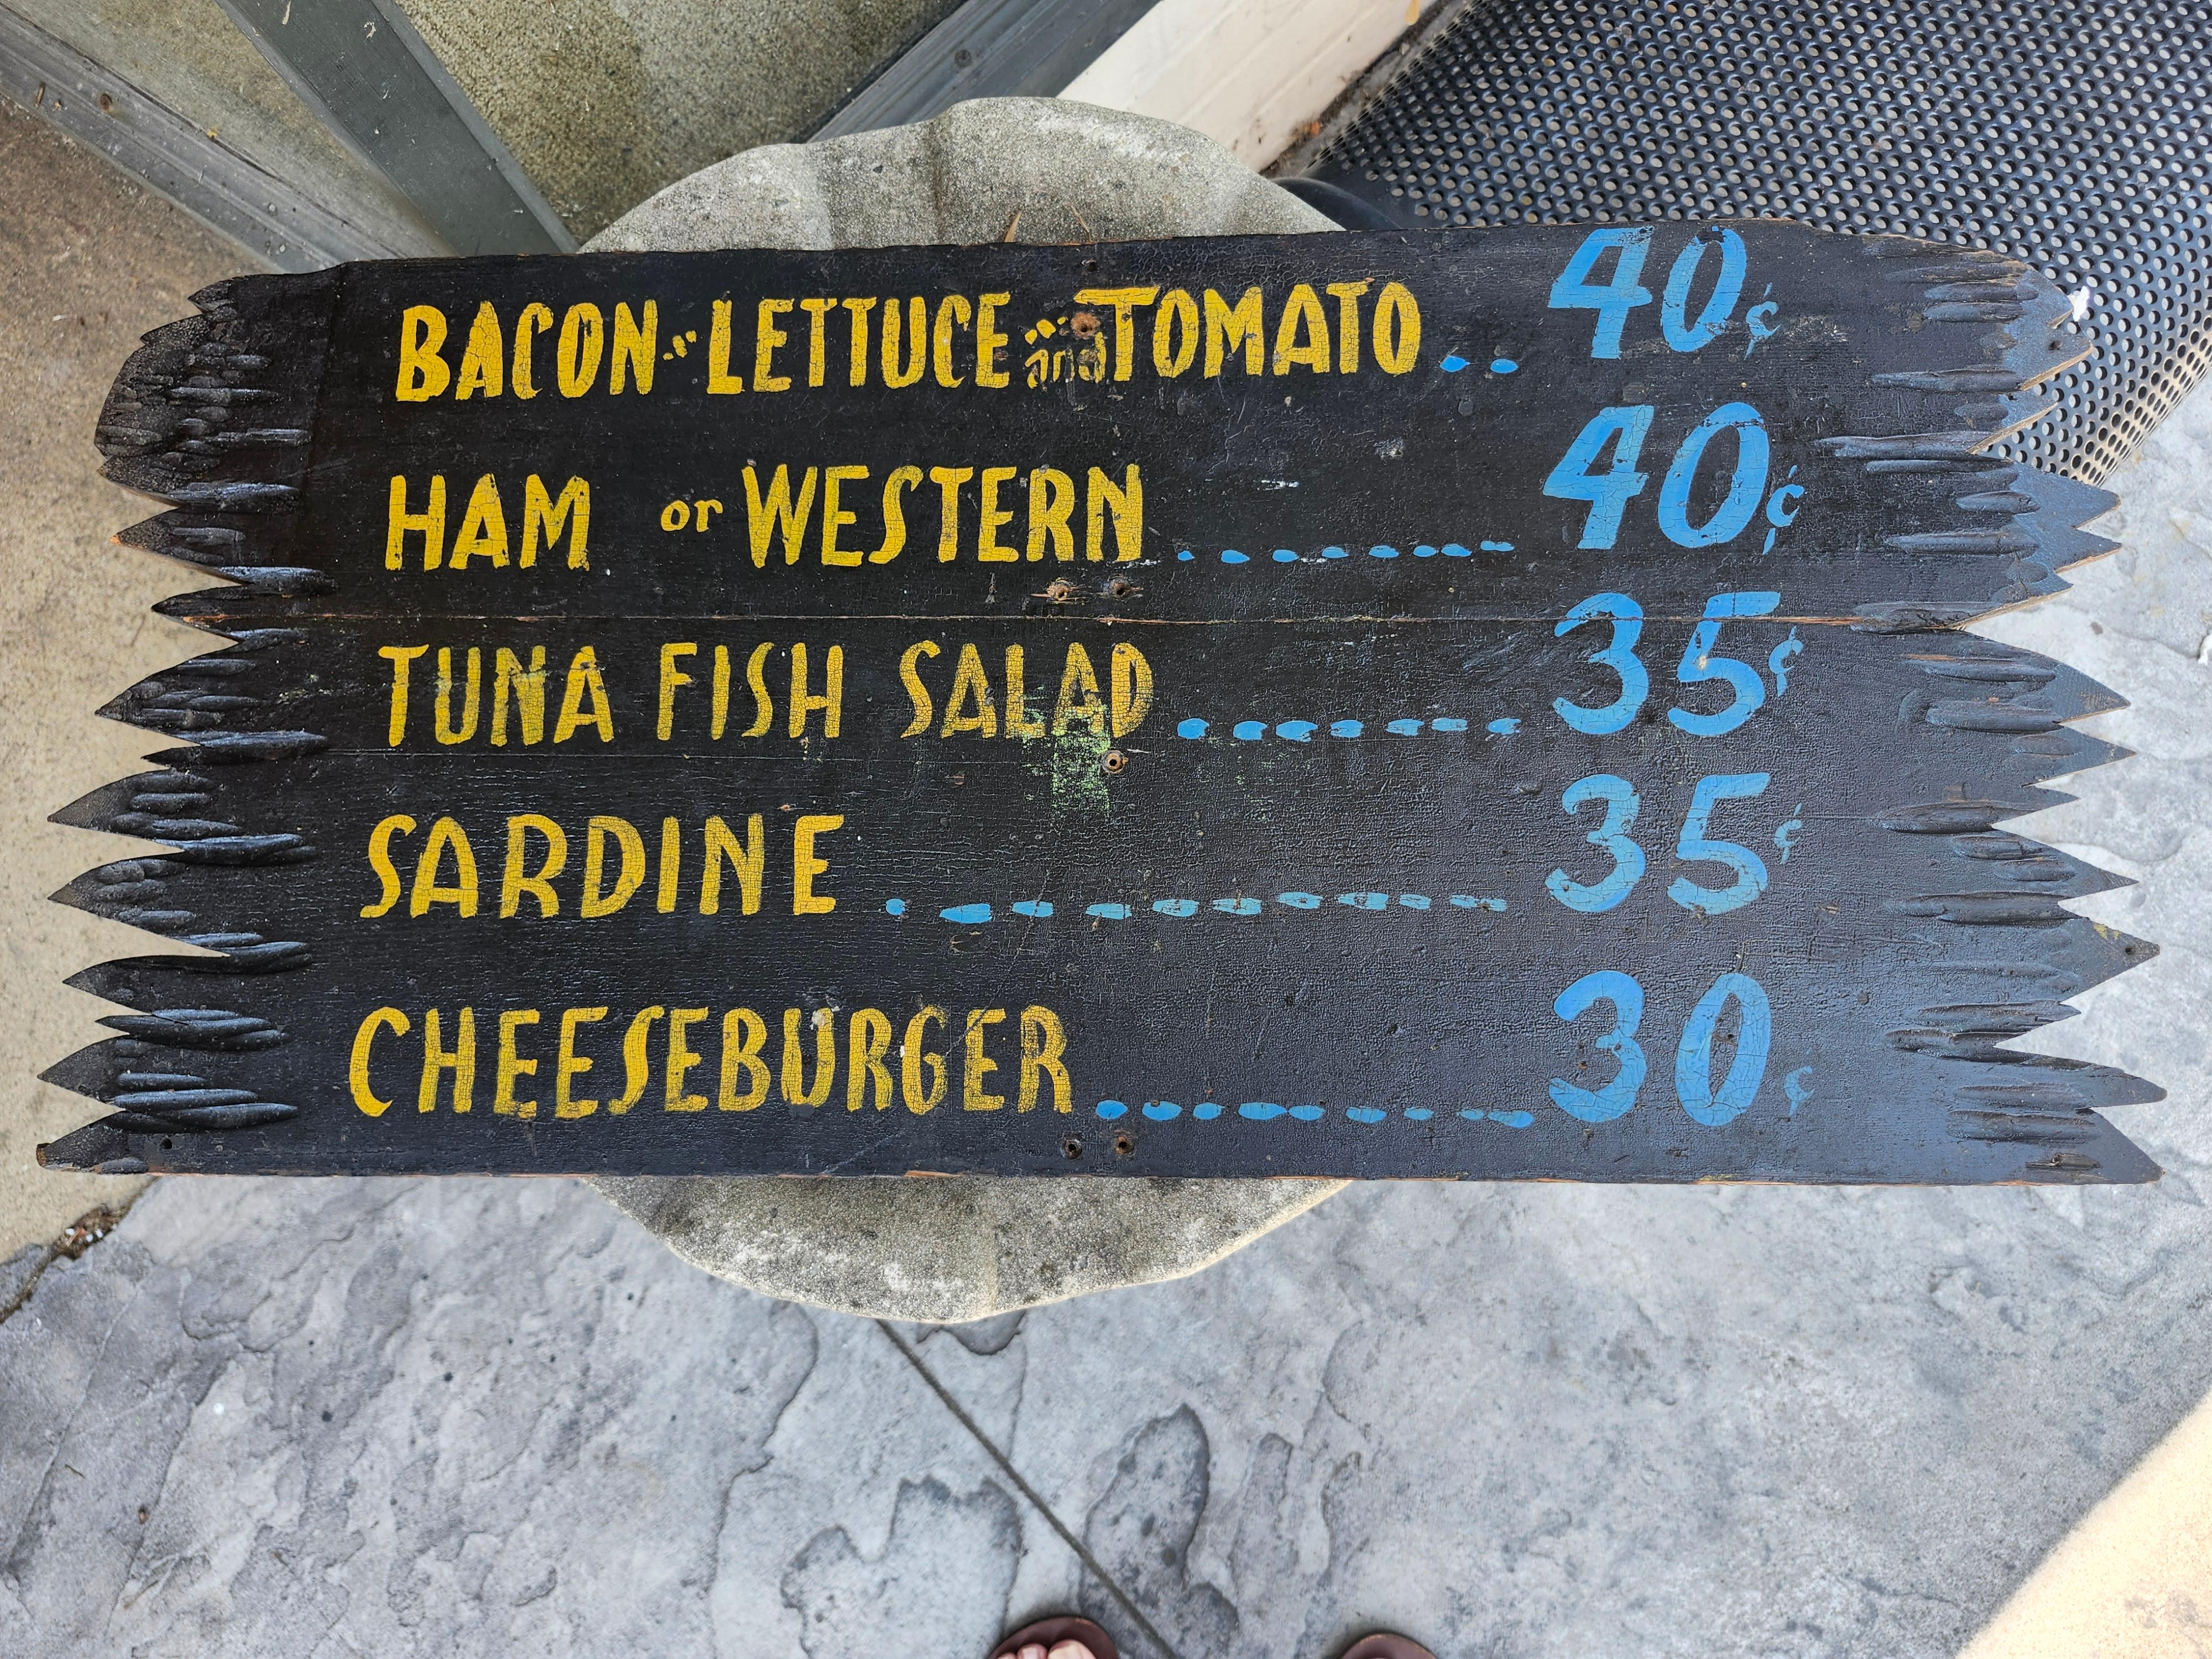 BACON - LETTUCE and TOMATO .. 40¢
HAM or WESTERN ........ 40¢
TUNA FISH SALAD ....... 35¢
SARDINE .......... 35¢
CHEESEBURGER ......... 30¢